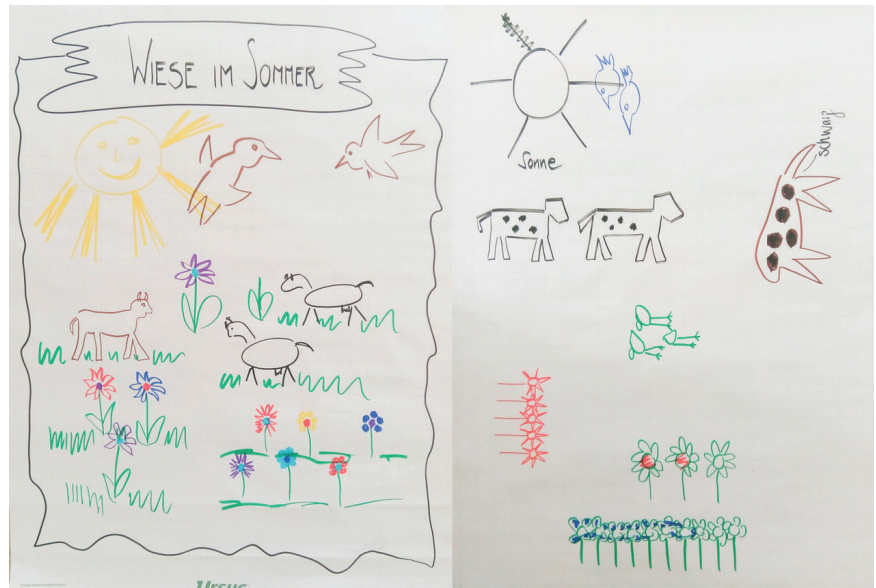 WIESE IM SOMMER
Sonne
schwarz
Ursus